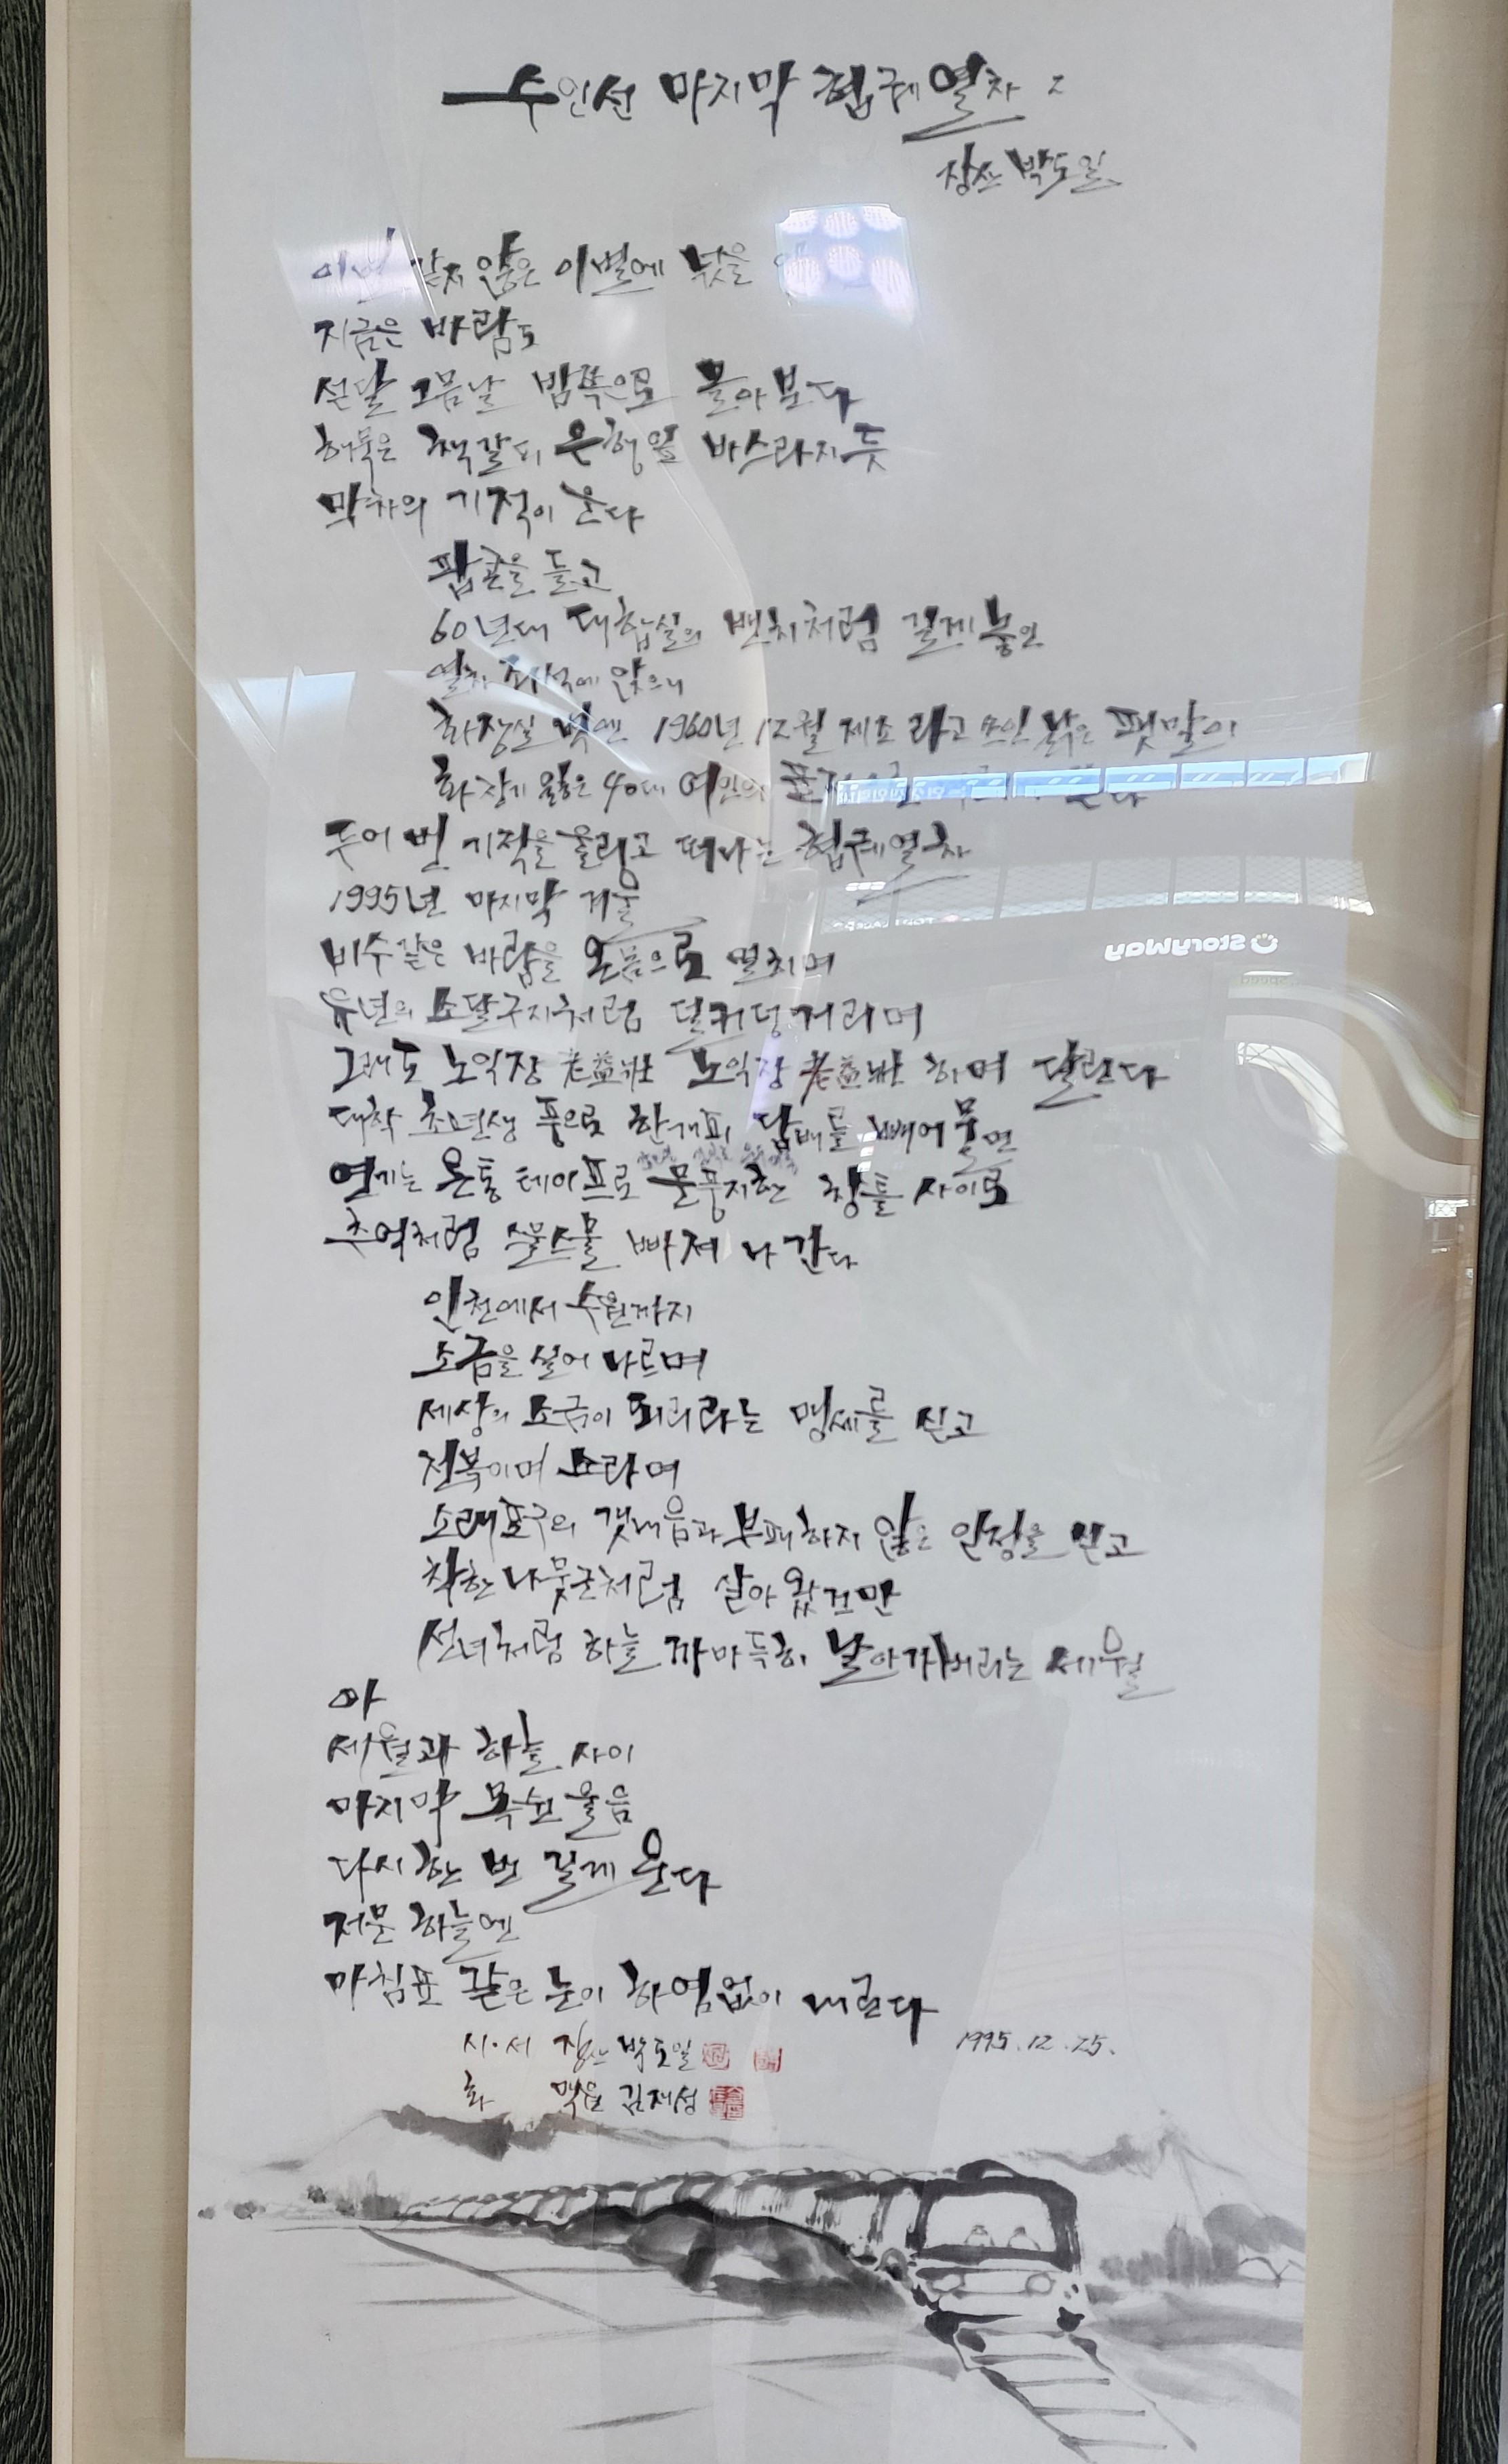 수인선 마지막 협궤열차 2
장산 박도일
이별 같지 않은 이별에 넋을
지금은 바람도
섣달 그믐날 밤쪽으로 몰아분다
해묵은 책갈피 은행잎 바스라지듯
막차의 기적이 운다
팝콘을 들고
60년대 대합실의 벤치처럼 길게 놓인
열차 좌석에 앉으니
화장실 벽엔 1960년 12월 제조라고 쓰인 낡은 팻말이
화장기 잃은 40대 여인의
두어 번 기적을 울리고 떠나는 협궤열차
1995년 마지막 겨울
비수같은 바람을 온몸으로 떨치며
유년의 소달구지처럼 덜커덩거리며
그래도 노익장 老益壯 노익장 老益壯 하며 달린다
대학 초년생 풍으로 한개피 담배를 빼어 물면
연기는 온통 테이프로 문풍지한 창틀 사이로
추억처럼 스물스물 빠져 나간다
인천에서 수원까지
소금을 실어 나르며
세상의 소금이 되리라는 맹세를 싣고
전복이며 소라며
소래포구의 갯내음과 부패하지 않은 인정을 싣고
착한 나뭇군처럼 살아 왔건만
선녀처럼 하늘 까마득히 날아가버리는 세월
아
세월과 하늘 사이
마지막 목쉰 울음
다시 한 번 길게 운다
저문 하늘엔
마침표 같은 눈이 하염없이 내린다
1995.12.25.
시·서 장산 박도일
화 맥운 김재성
storyway